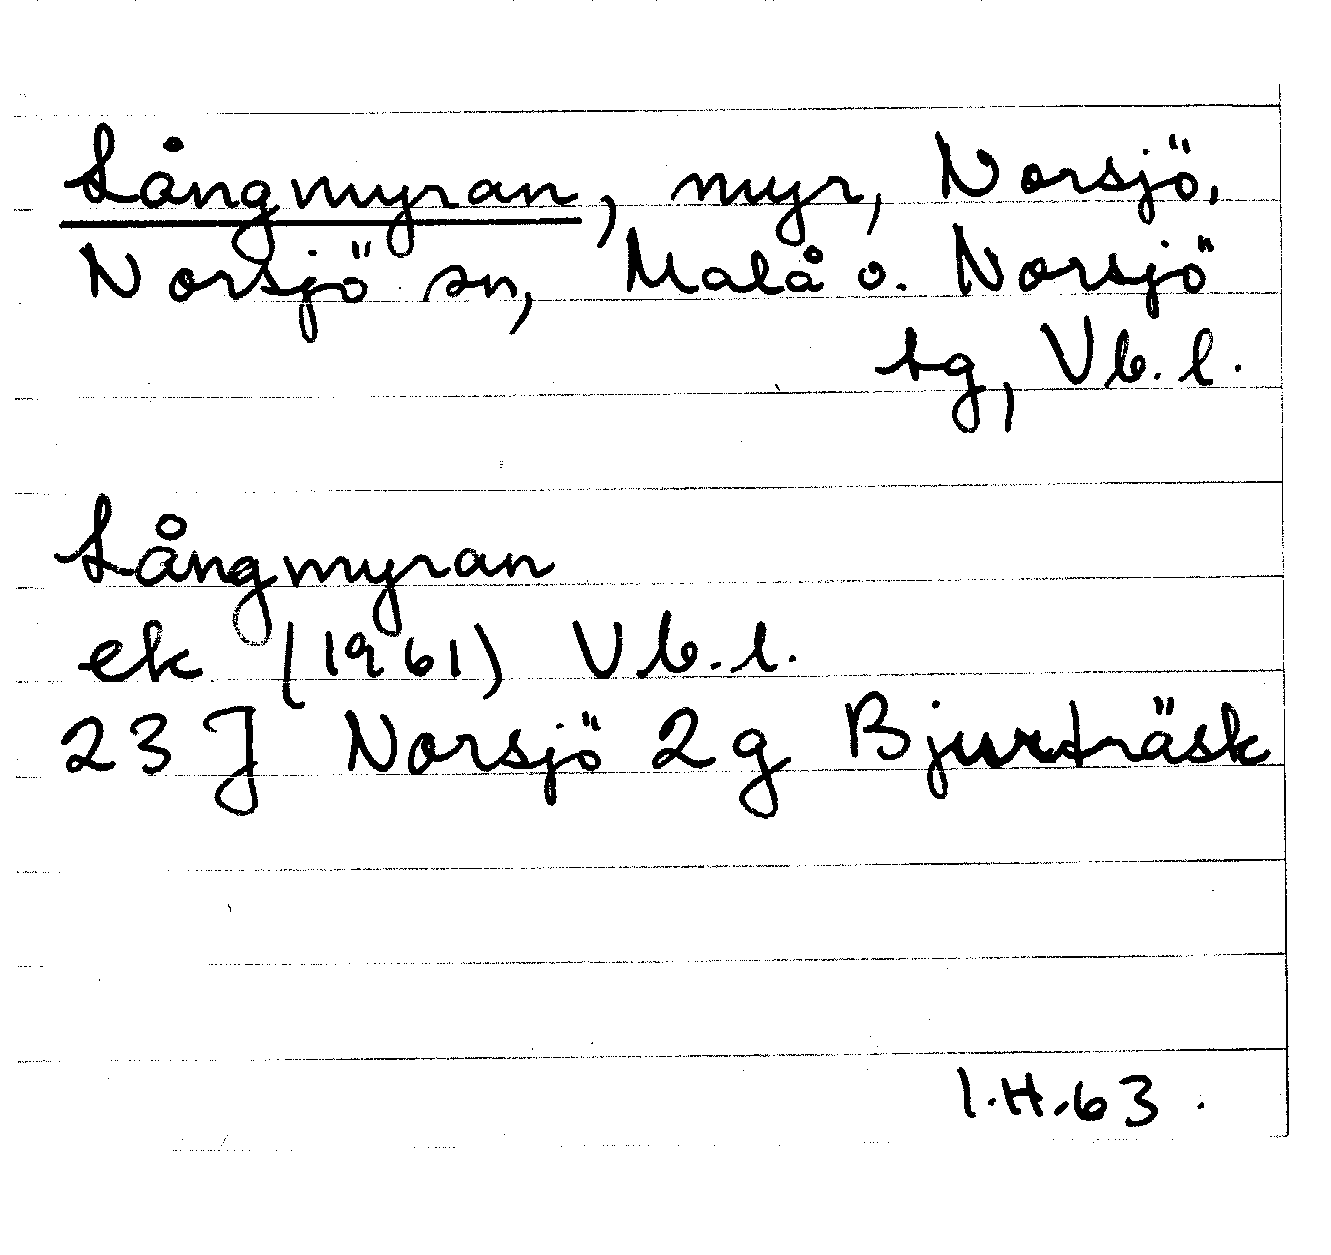 Långmyran, myr, Norsjö,
Norsjö sn, Malå o. Norsjö
tg, Vb. l.
Långmyran
ek (1961) Vb. l.
23 J Norsjö 2 g Bjurträsk
I.H.63.